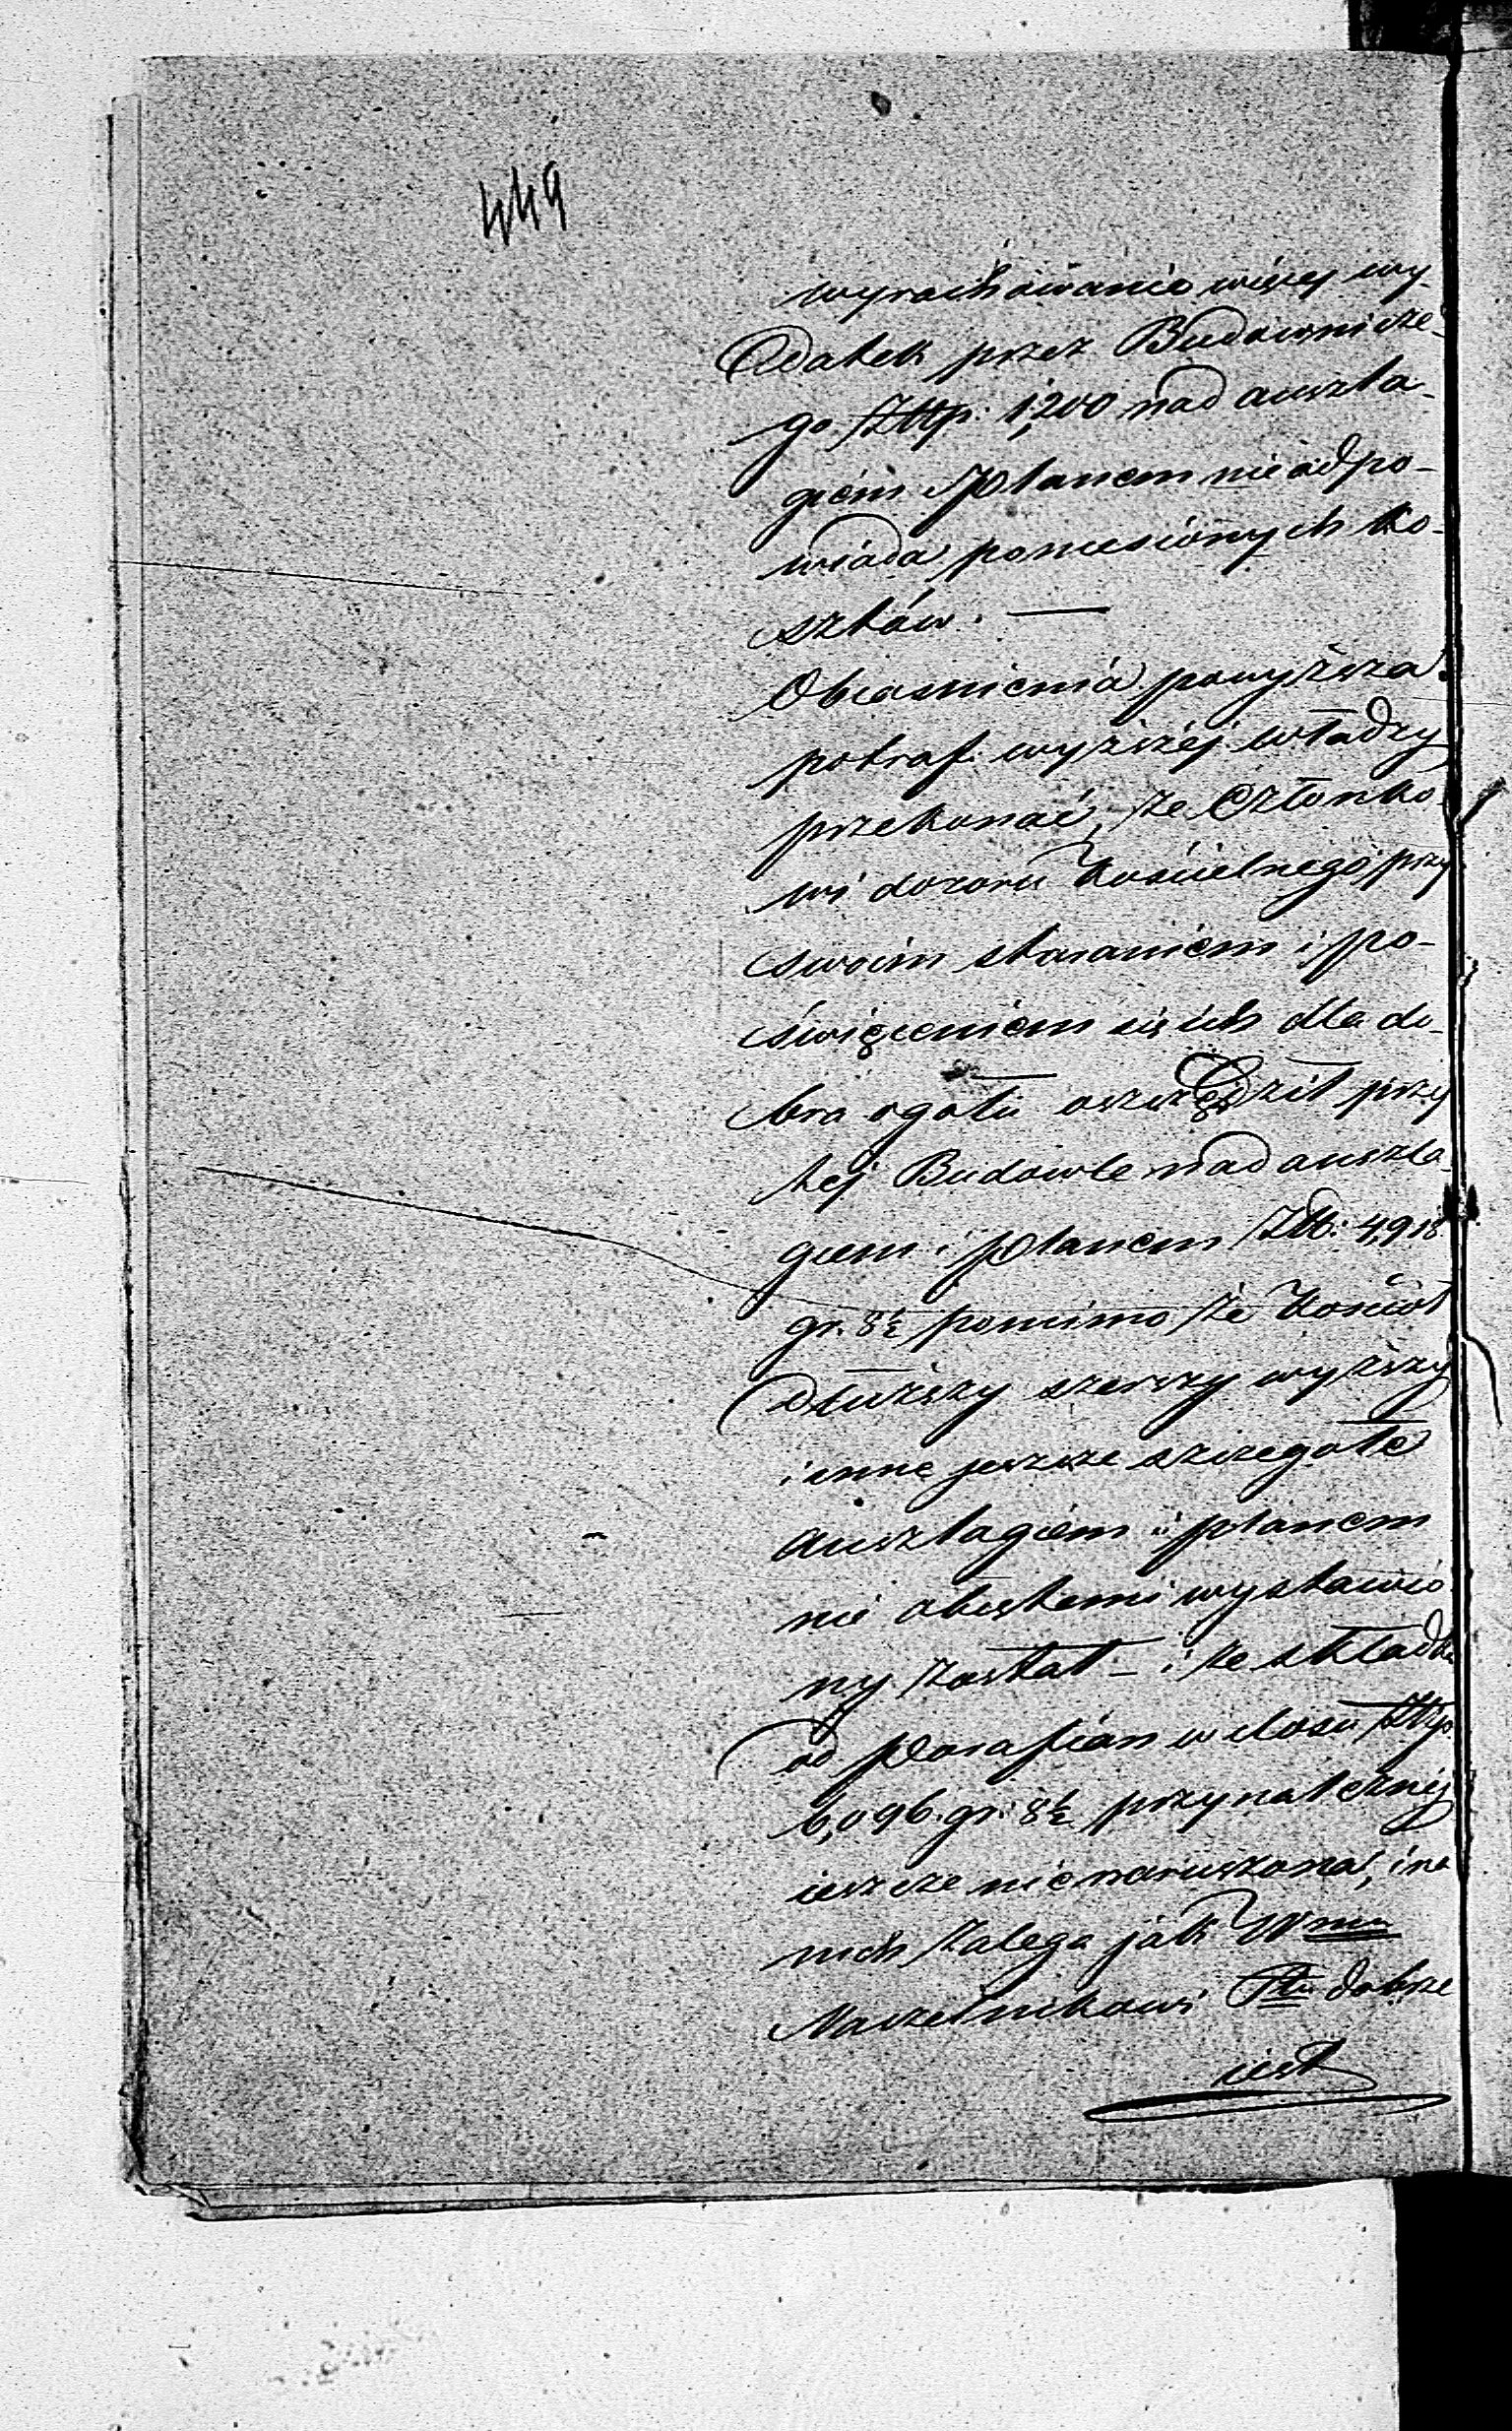 449
wyrachowanie więcej wy-
datek przez Budownicze-
go Złtp: 1,200 nad auszla-
giem Planem nieodpo-
wiada poniesionych ko-
sztów. —
Obiasnienia powyższa
potrafi wyższej władzy
przekonać, że Członko-
wi dozoru Kościelnego przy
swoim staraniem i po-
święceniem się ich dla do-
bra ogołu oszczędził przy
tej Budowle nad auszla-
giem i Planem Złt: 4,918
gr. 8½ pomimo że Kościoł
dłuższy szerszy wyższy
i inne jeszcze szczegołe
auszlagiem i planem
nie obiętemi wystawio
ny został – i że składka
od Parafian w ilości Złtp
6,096. gr: 8½ przynależnej
ieszcze nienaruszona, i na
nich zalega jak W
Naczelnikowi Ptu dobrze
iest